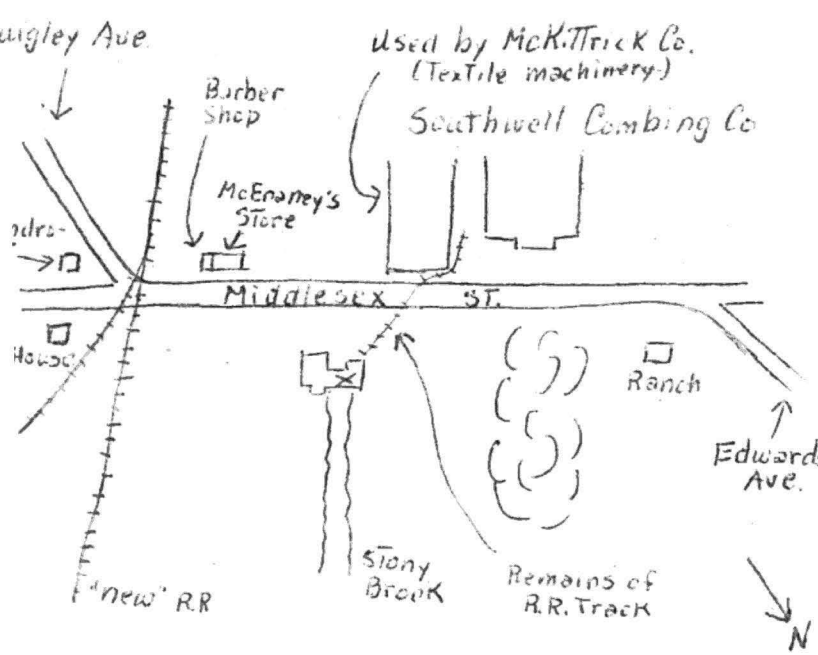 uigley Ave.
Used by McKiTTrick Co.
(TexTile machinery)
Barber
Shop
Southwell Combing Co
McEnaney's
STore
ydro-
Middlesex ST.
House
Ranch
Edward
Ave.
STony
Brook
Remains of
R.R. Track
"new" R.R
N